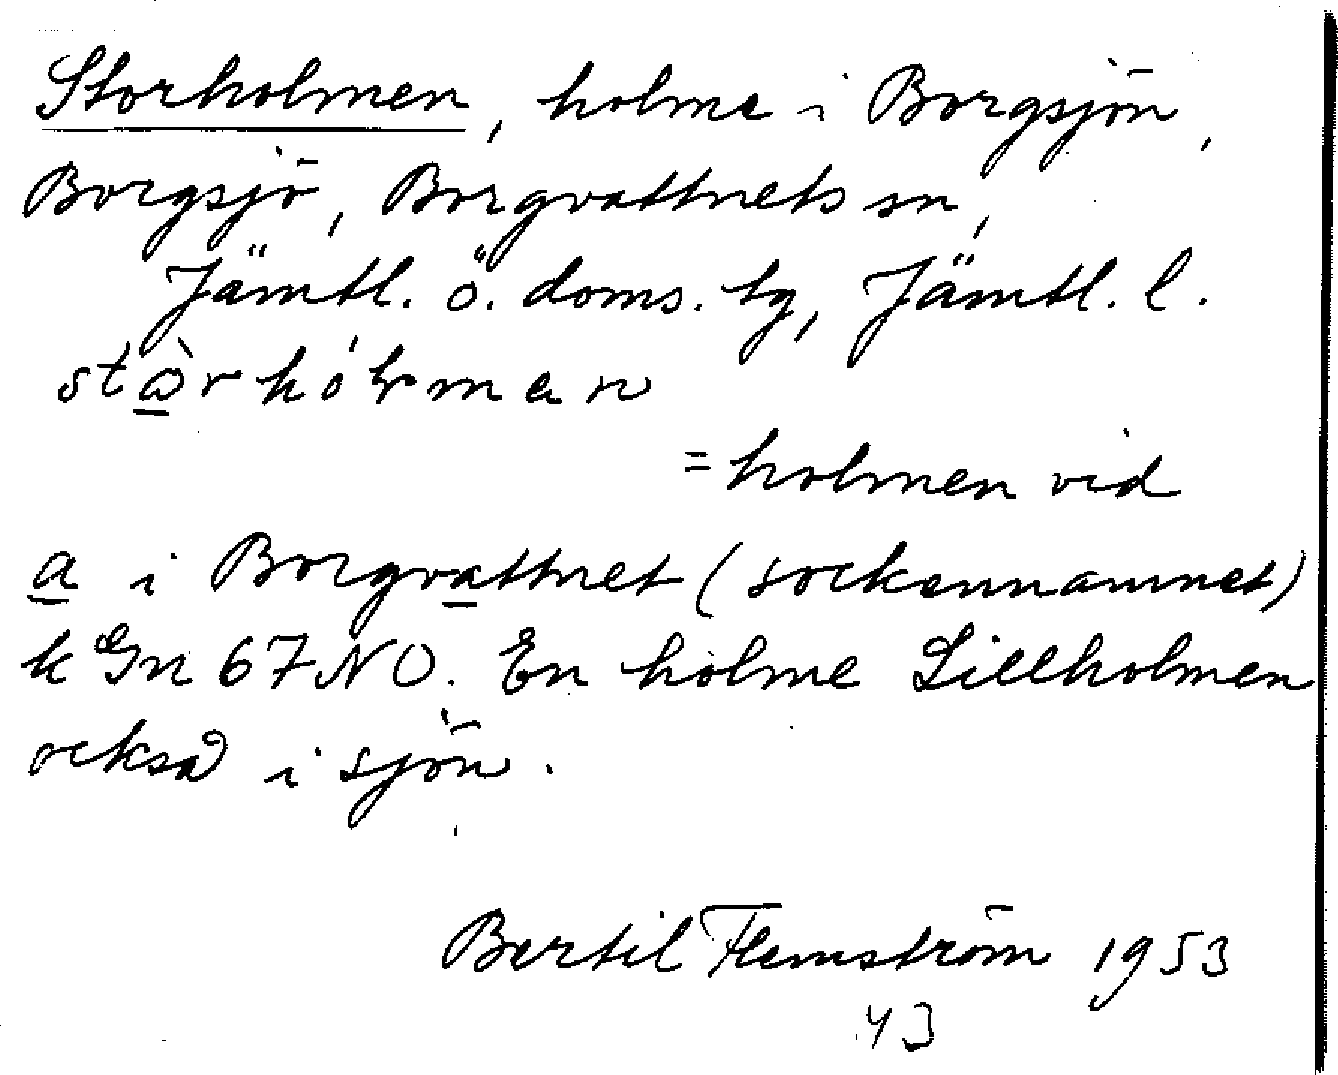 Storholmen, holme i Borgsjön,
Borgsjö, Borgvattnets sn,
Jämtl. ö. doms. tg, Jämtl. l.
= holmen vid
a i Borgvattnet (sockennamnet)
k Gn 67 NO. En holme Lillholmen
också i sjön.
Bertil Flemström 1953
43